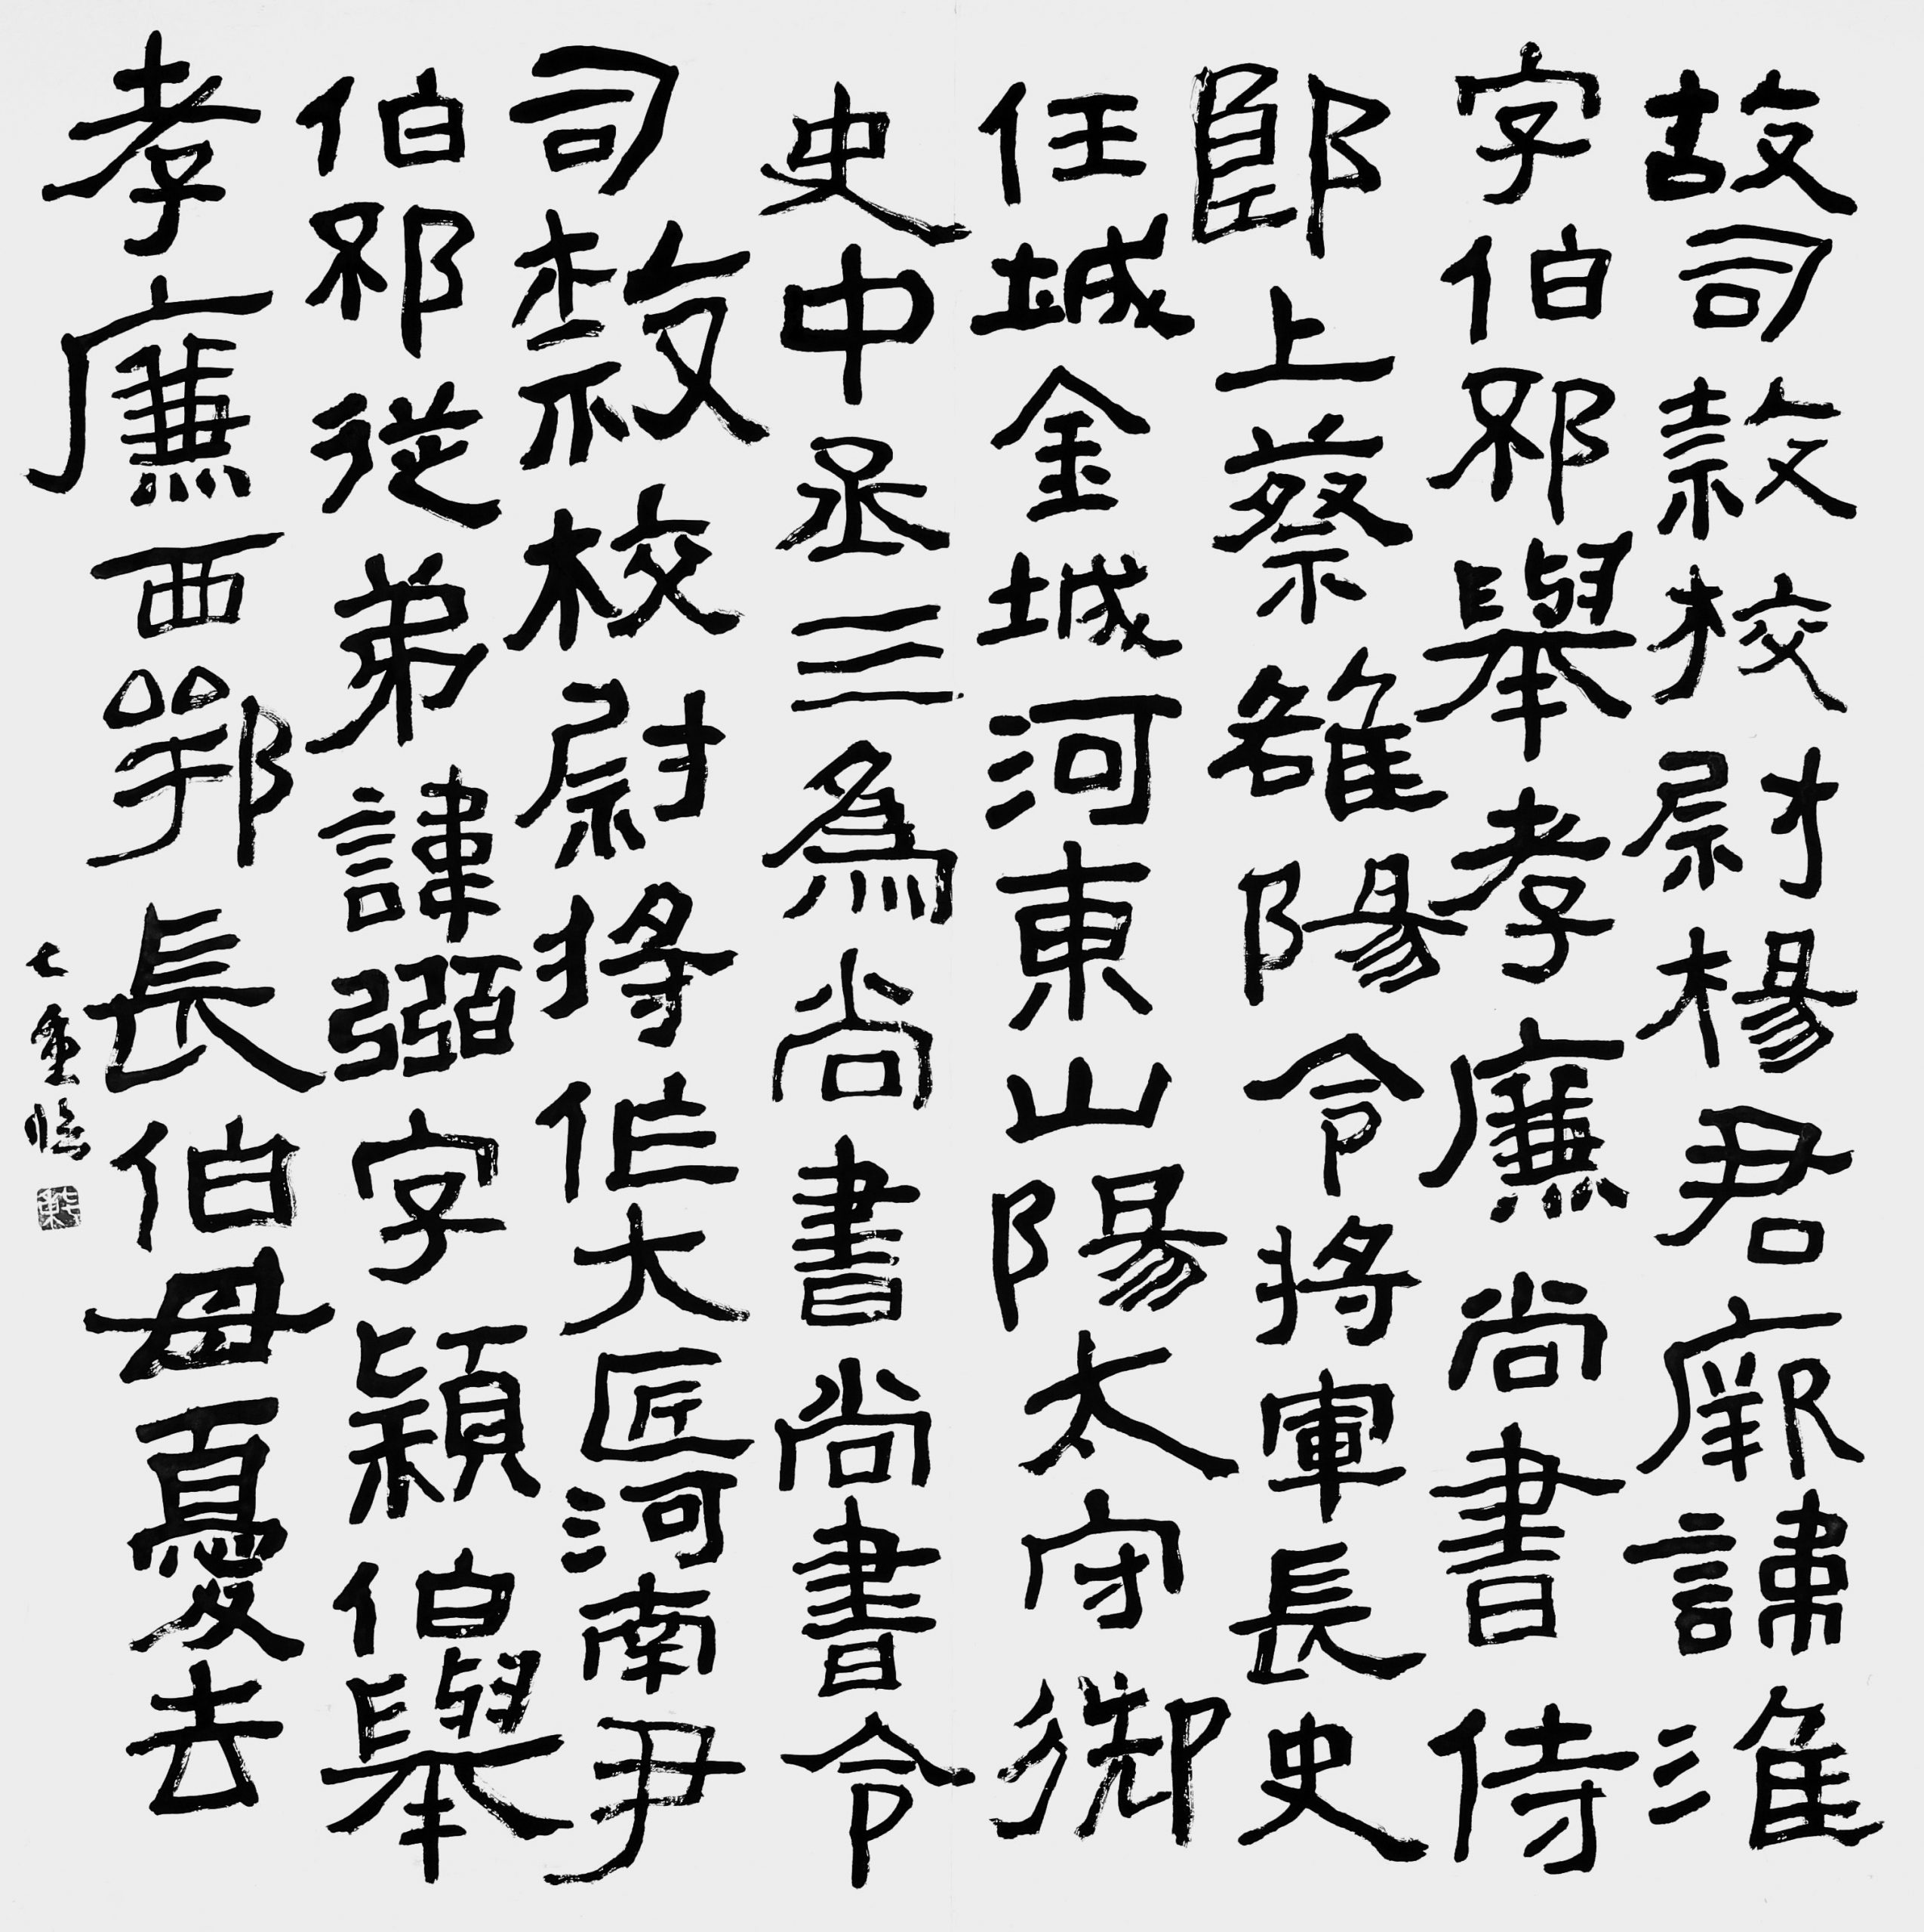 故司隸校尉楊君厥諱淮
字伯邳舉孝廉尚書侍
郎上蔡雒陽令將軍長史
任城金城河東山陽太守御
史中丞三為尚書尚書令
司隸校尉將作大匠河南尹
伯邳從弟諱弼字穎伯舉
孝廉西鄂長伯母憂去
七重臨